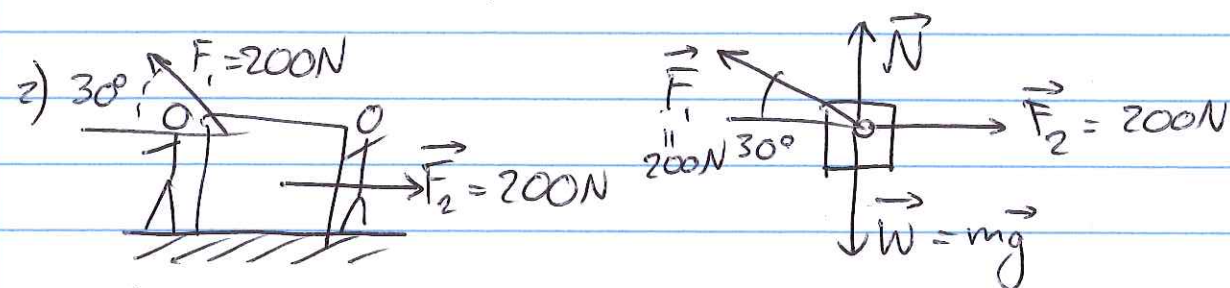 2) 30° F₁ = 200N
F⃗₂ = 200N
N⃗
F⃗₁
=
200N 30°
F⃗₂ = 200N
W⃗ = mg⃗